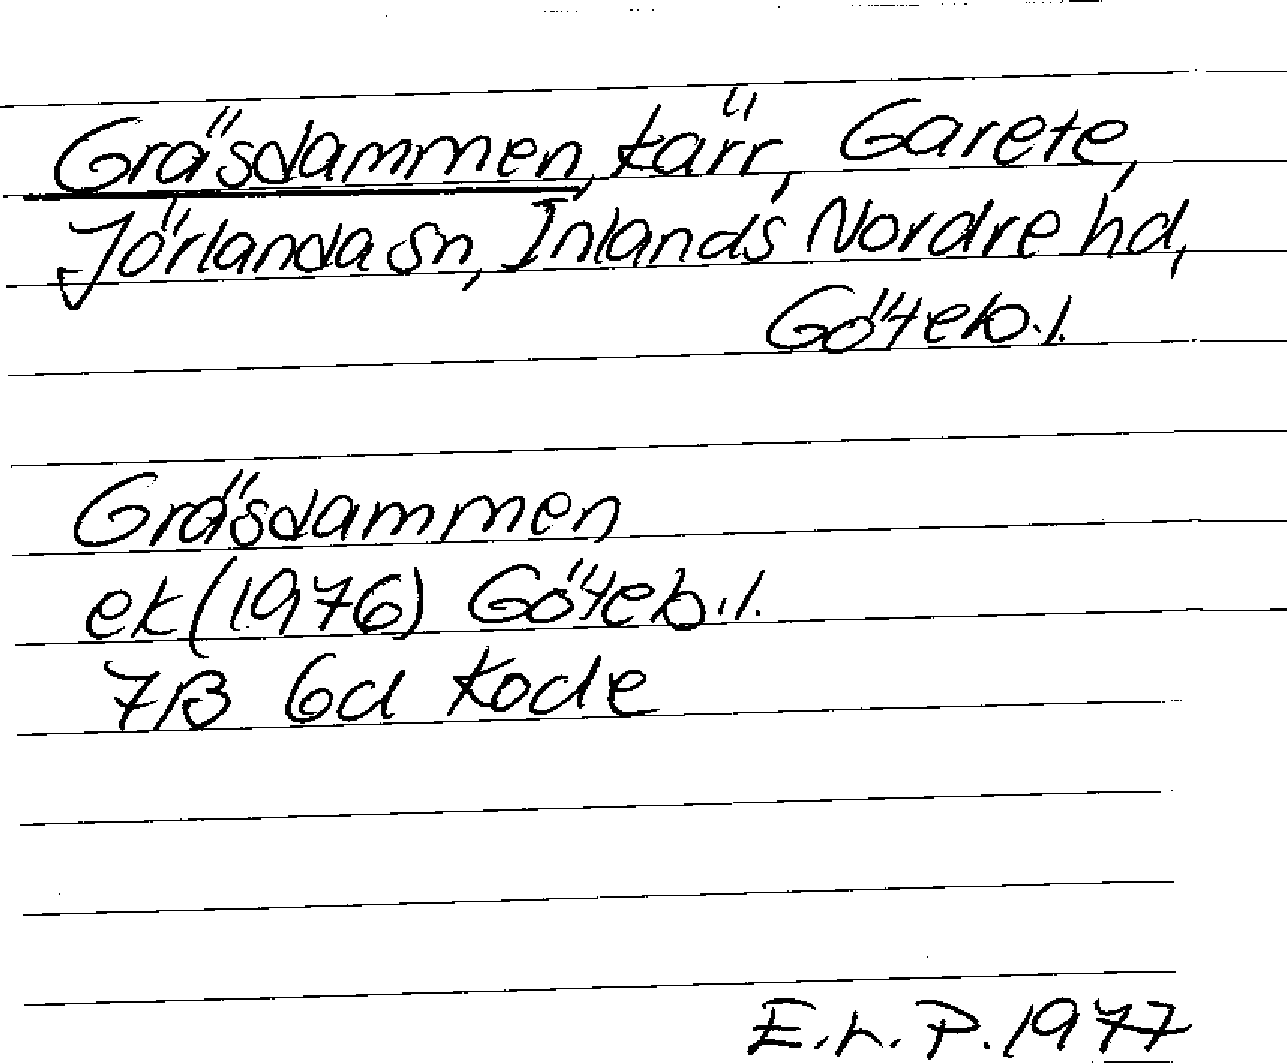 Gräsdammen, kärr, Garete,
Jörlanda sn, Inlands Nordre hd,
Göteb.l.
Gräsdammen
ek (1976) Göteb.l.
7B 6d Kode
E.h.P. 1977